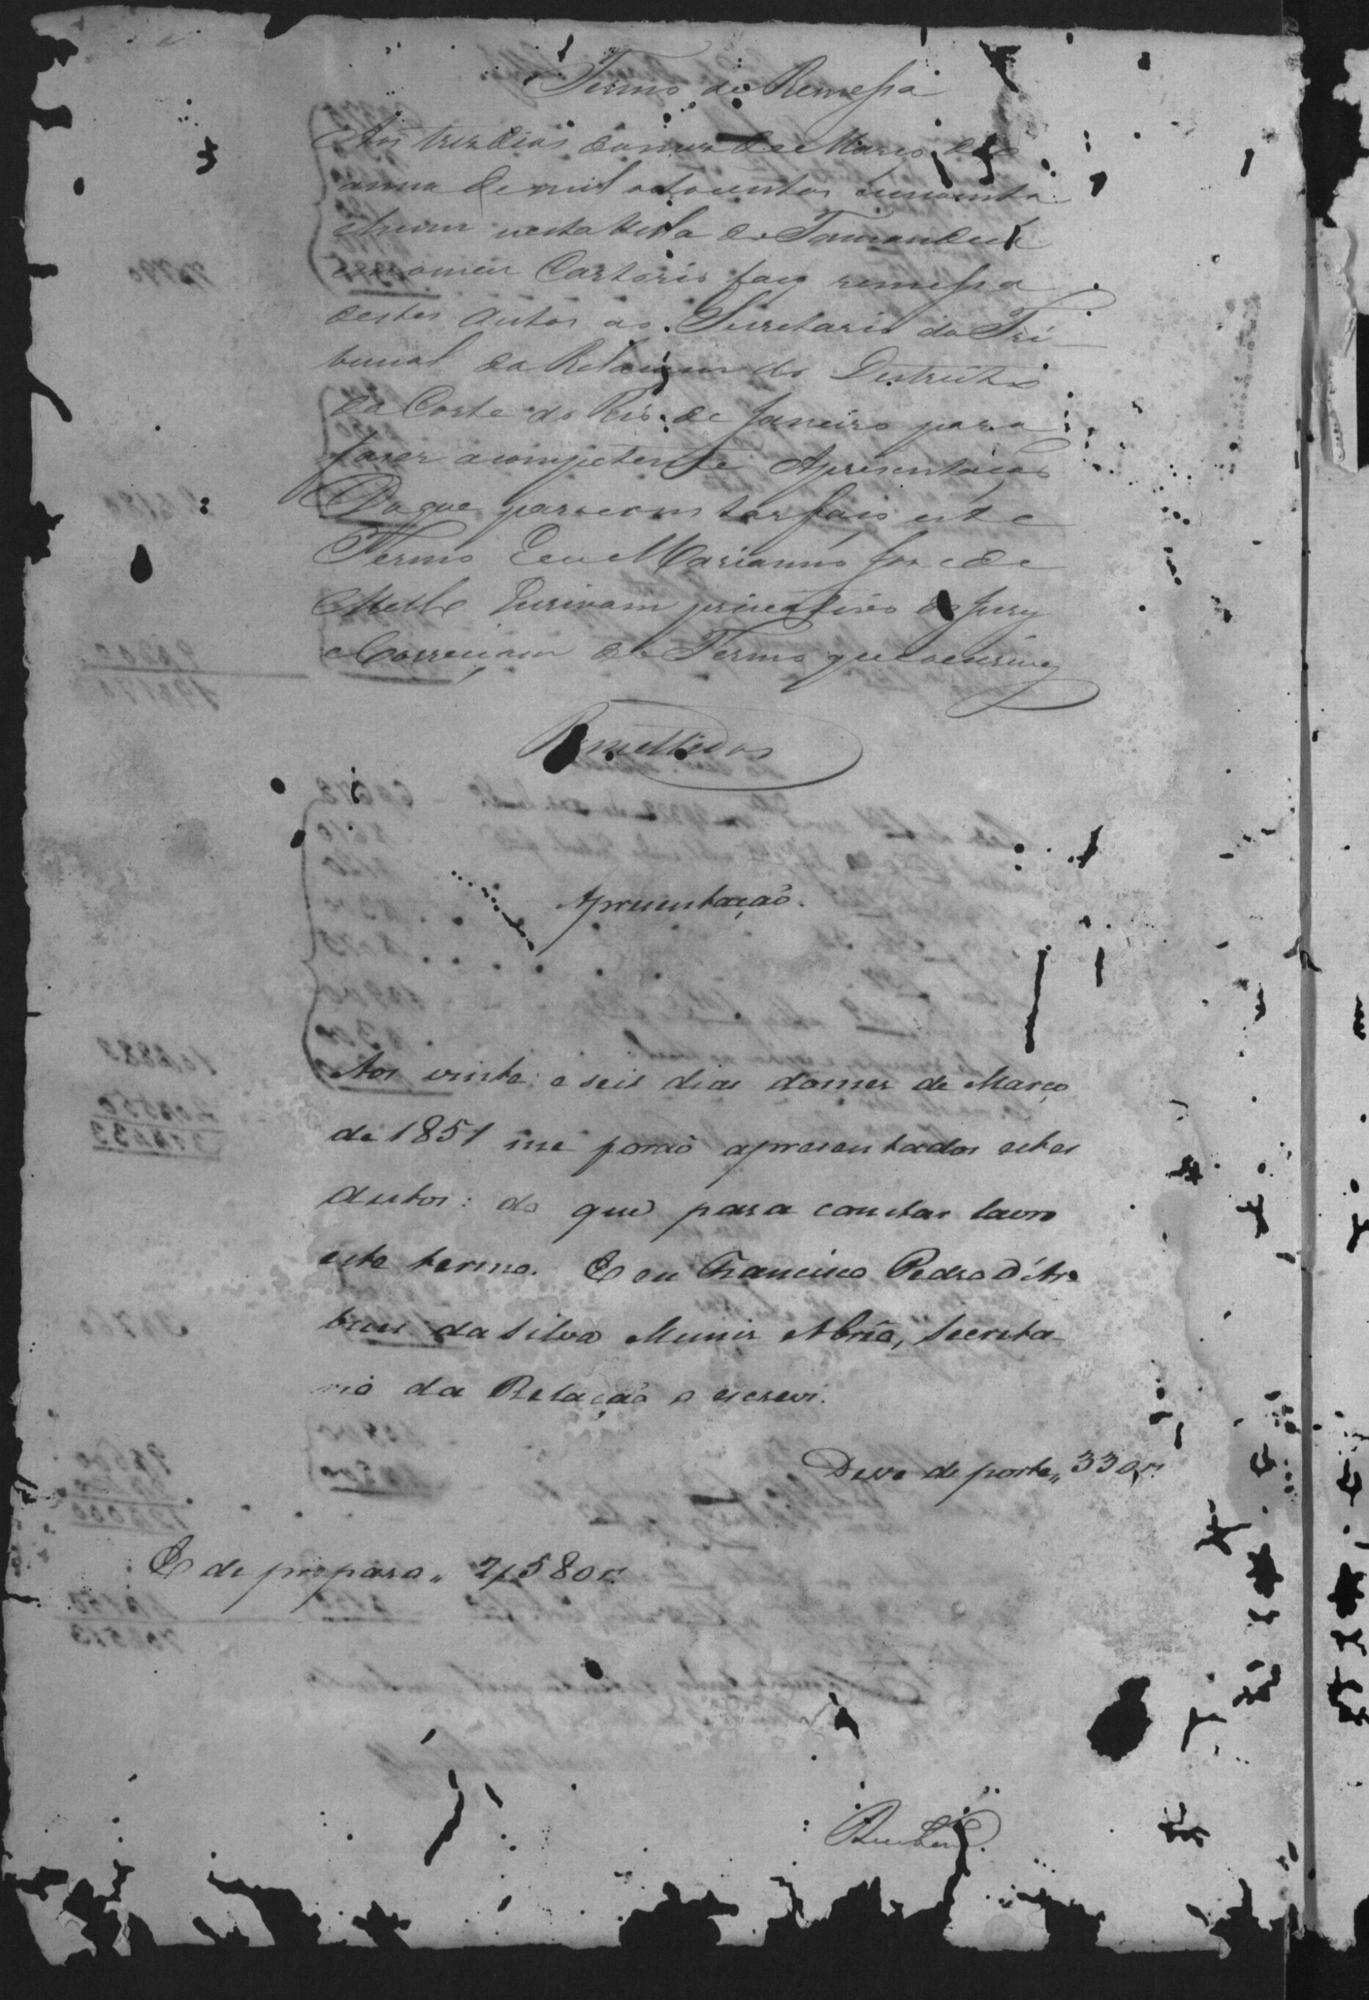 Termo de Remessa
Aos tres dias do mes de Março do
anno de mil oitocentos cincoenta
e hum nesta Villa de Tamanduá
em o meu Cartorio faço remessa
destes Autos ao Secretario do Tri-
bunal da Relaçam do Destricto
da Corte do Rio de Janeiro para
fazer a competente Apresentaçao
Do que para constar faço este
Termo Eu Marianno Jose de
Mello Escrivam privativo do Jury
e Correiçam do Termo que o escrevy
Remettidos
Apresentação.
Aos vinte e seis dias do mes de Março
de 1851 me forão apresentados estes
autos: do que para constar lavro
este termo. E eu Francisco Pedro d'Ar-
bues da Silva Muniz Abreo, Secreta-
rio da Relação o escrevi.
Deve de porte " 330 r.
E de preparo " 2/580 r.